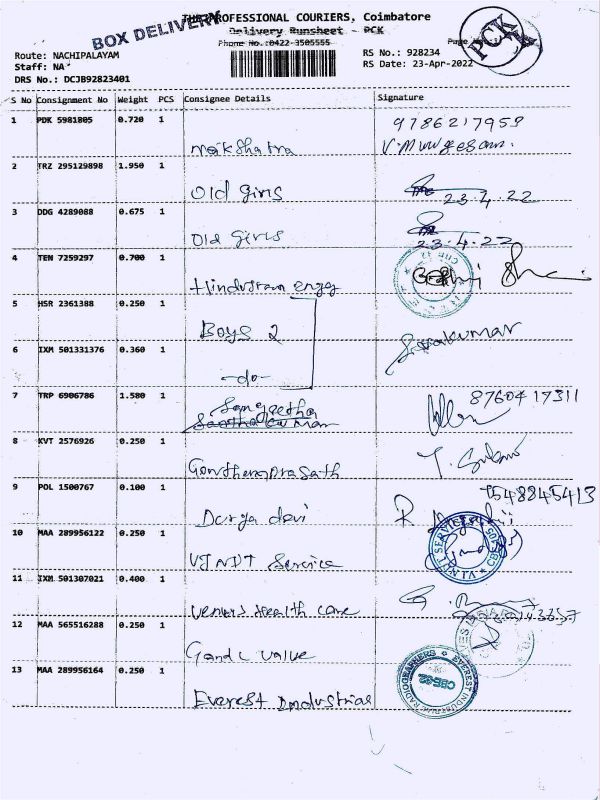 BOX DELIVERY
THE PROFESSIONAL COURIERS, Coimbatore
Delivery Runsheet - PCK
Phone No.:0422-3505555
PCK
Route: NACHIPALAYAM
Staff: NA
DRS No.: DCJB92823401
RS No.: 928234
RS Date: 23-Apr-2022
S No Consignment No Weight PCS Consignee Details Signature
1 PDK 5981805 0.720 1
9786217959
Nakshatra V.Murugesan.
2 TRZ 295129898 1.950 1
Old girls 23.4.22
3 DDG 4289088 0.675 1
Old girls 23.4.22
4 TEN 7259297 0.700 1
Hindustan engg
5 HSR 2361388 0.250 1
Boys 2
6 IXM 501331376 0.360 1
Sivakumar
-do-
7 TRP 6906786 1.580 1
8760417311
Sangeetha
8 KVT 2576926 0.250 1
Gowthamprasath
9 POL 1500767 0.100 1
7548845413
Durga devi
10 MAA 289956122 0.250 1
VJNDT Service
VJ NDT SERVICES
11 IXM 501307021 0.400 1
Venus Health care
12 MAA 565516288 0.250 1
Gandc valve
13 MAA 289956164 0.250 1
Everest Industrias
EVEREST INDUSTRIAL RADIOGRAPHERS